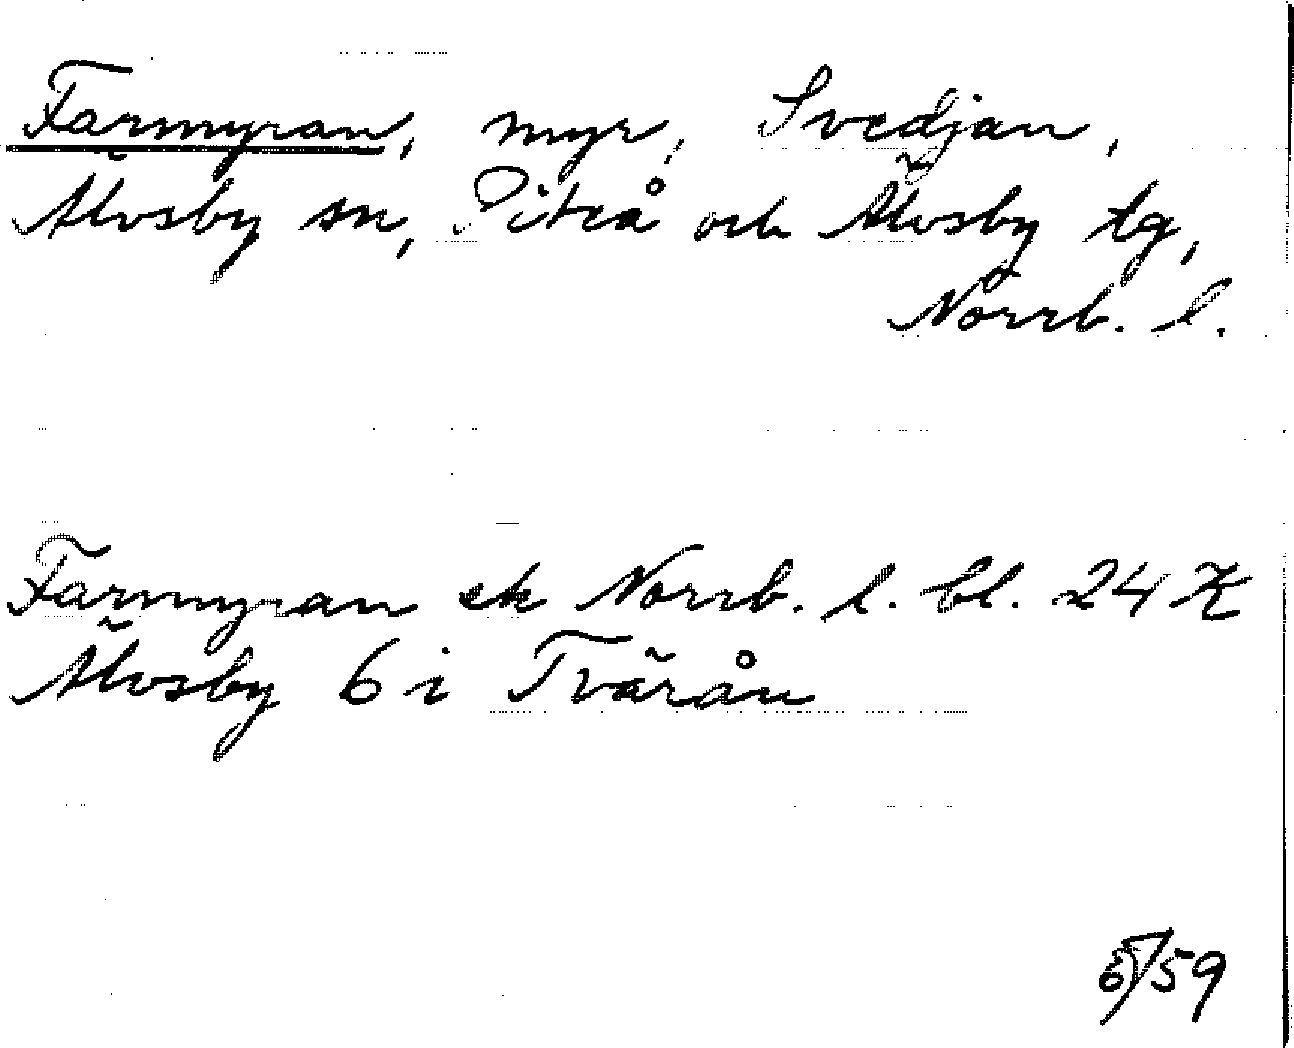 Farmyran, myr, Svedjan,
Älvsby sn, Piteå och Älvsby tg,
Norrb. l.
Farmyran ek Norrb. l. bl. 24 K
Älvsby 6 i Tvärån